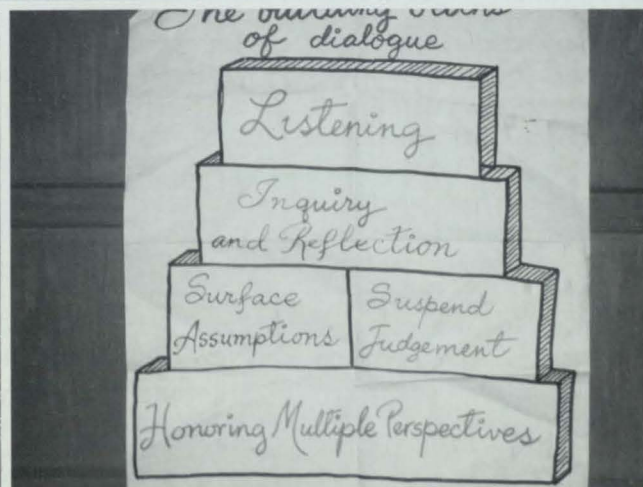 The building blocks
of dialogue
Listening
Inquiry
and Reflection
Surface
Assumptions
Suspend
Judgement
Honoring Multiple Perspectives